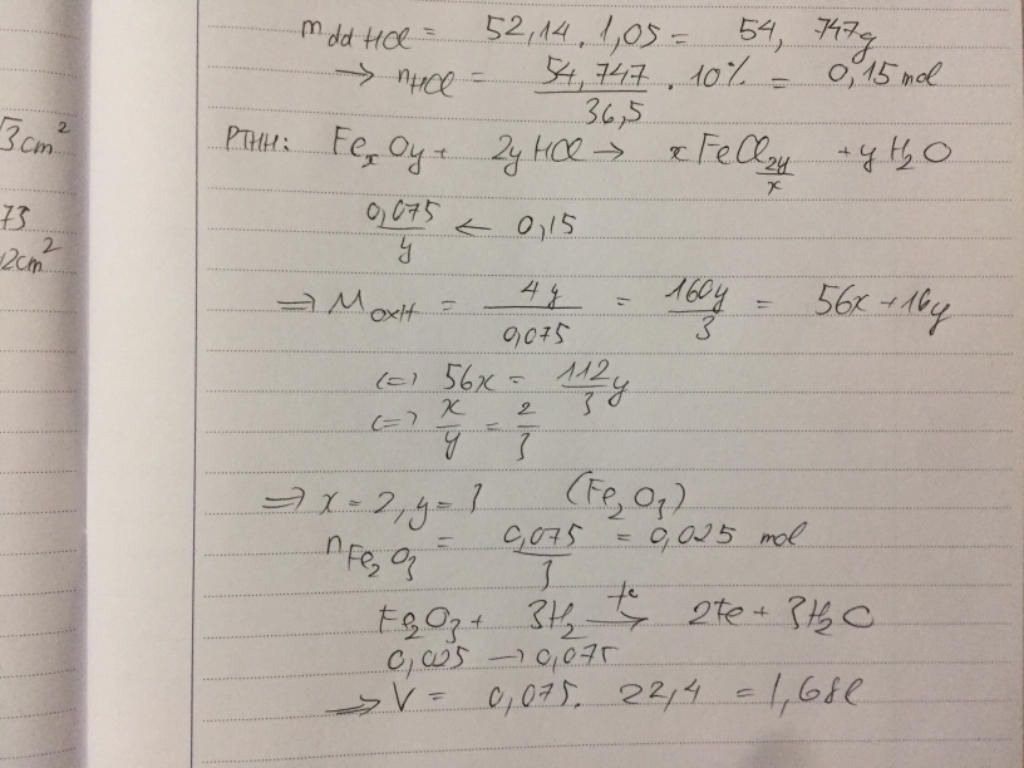 m dd HCl = 52,14 . 1,05 = 54, 747g
→ nHCl = 54,747/36,5 . 10% = 0,15 mol
√3cm²
PTHH: FexOy + 2yHCl → xFeCl2y/x + yH2O
0,075/y ← 0,15
73
2cm²
=> M oxH = 4y/0,075 = 160y/3 = 56x + 16y
<=> 56x = 112/3 y
<=> x/y = 2/3
=> x = 2, y = 3 (Fe2O3)
nFe2O3 = 0,075/3 = 0,025 mol
Fe2O3 + 3H2 t° → 2Fe + 3H2O
0,025 → 0,075
=> V = 0,075. 22,4 = 1,68l